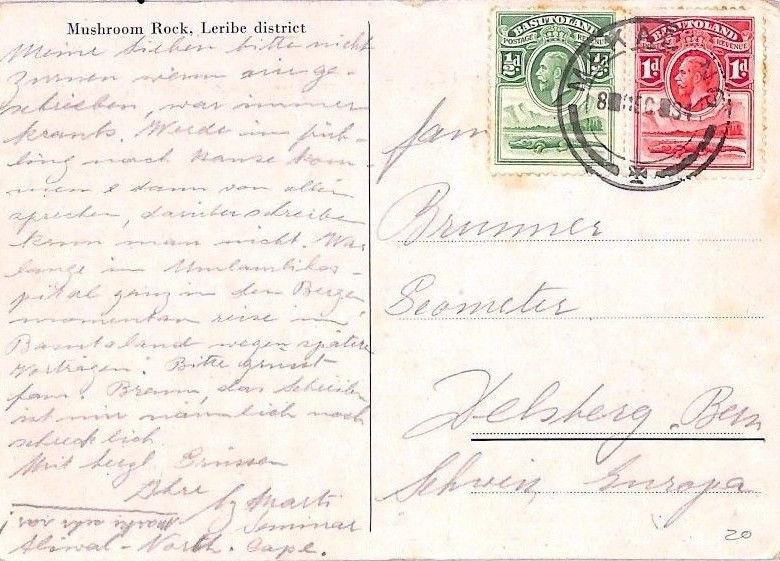 Mushroom Rock, Leribe district
Meine Lieben bitte nicht
zürnen wenn
schrieben, war immer
krank. Werde im früh-
ling nach Hause kom-
men & dann von allem
sprechen, darüber schreiben
kann man nicht. War
lange im Umlamli hos-
pital ganz in den Bergen
momentan reise im
Basutoland wegen spätere
Vorträgen. Bitte grüsst
fam. das schreiben
ist mir nämlich noch
schrecklich
Mit herzl Grüssen
Marti
Seminar
Aliwal-North. Cape.
BASUTOLAND
POSTAGE REVENUE
½d ½d
BASUTOLAND
POSTAGE REVENUE
1d 1d
8 DEC
fam
Brunner
Geometer
Delsberg. Bern
Schweiz, Europa
20